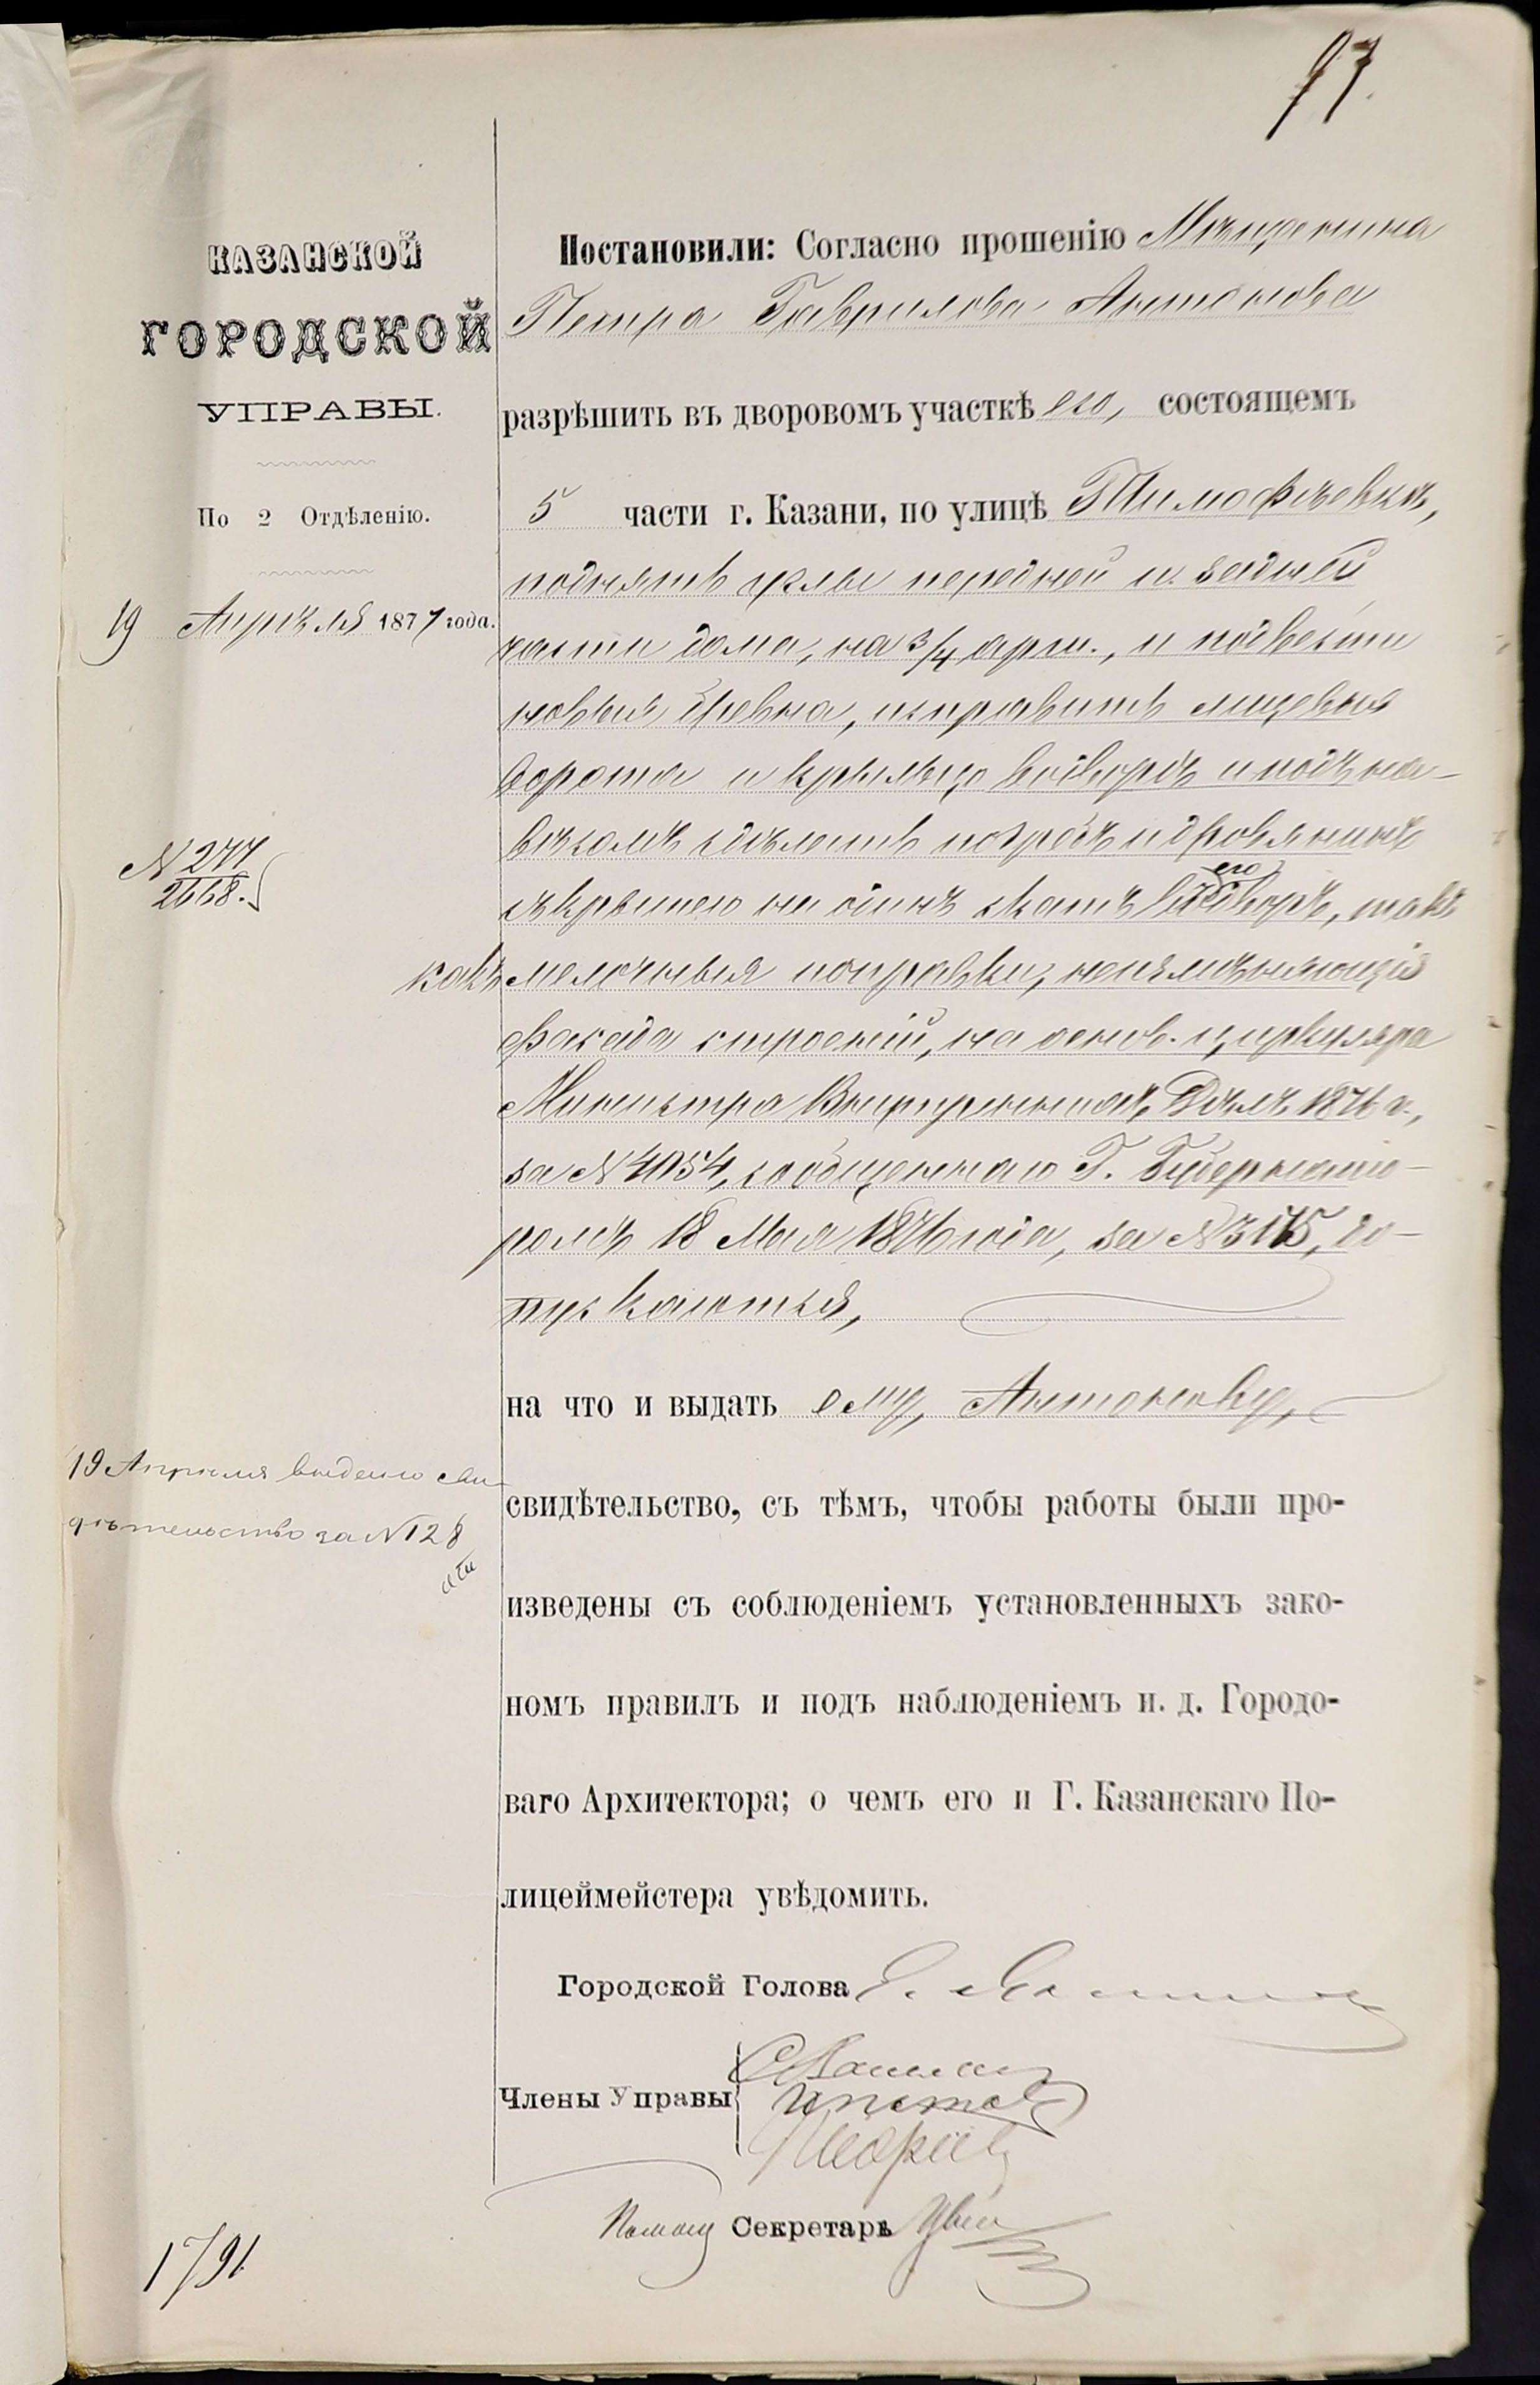 97.
КАЗАНСКОЙ
ГОРОДСКОЙ
УПРАВЫ.
По 2 Отдѣленію.
19 Апрѣля 1877 года.
№ 277
2668.
19 Апрѣля выдано сви-
дѣтельство за №128
1791
Постановили: Согласно прошенію Мѣщанина
Петра Гаврилова Антонова
разрѣшить въ дворовомъ участкѣ его, состоящемъ
5 части г. Казани, по улицѣ Тимофѣевкѣ,
поднять углы передней и задней
части дома, на 3/4 арш., и подвести
новыя бревна, исправить лицевыя
ворота и крыльцо во дворѣ и подъ на-
вѣсомъ сдѣлать погребъ и дровяникъ
съ крышею на одинъ скатъ во его дворъ, такъ
какъ мелочныя поправки, неизмѣняющія
фасада строеній, на основ. циркуляра
Министра Внутреннихъ Дѣлъ 1876 г.,
за № 4054, сообщеннаго Г. Губернато-
ромъ 18 Мая 1876 года, за № 3175, до-
пускаются,
на что и выдать ему, Антонову,
свидѣтельство, съ тѣмъ, чтобы работы были про-
изведены съ соблюденіемъ установленныхъ зако-
номъ правилъ и подъ наблюденіемъ и. д. Городо-
ваго Архитектора; о чемъ его и Г. Казанскаго По-
лицеймейстера увѣдомить.
Городской Голова
Члены Управы
Помощ Секретарь